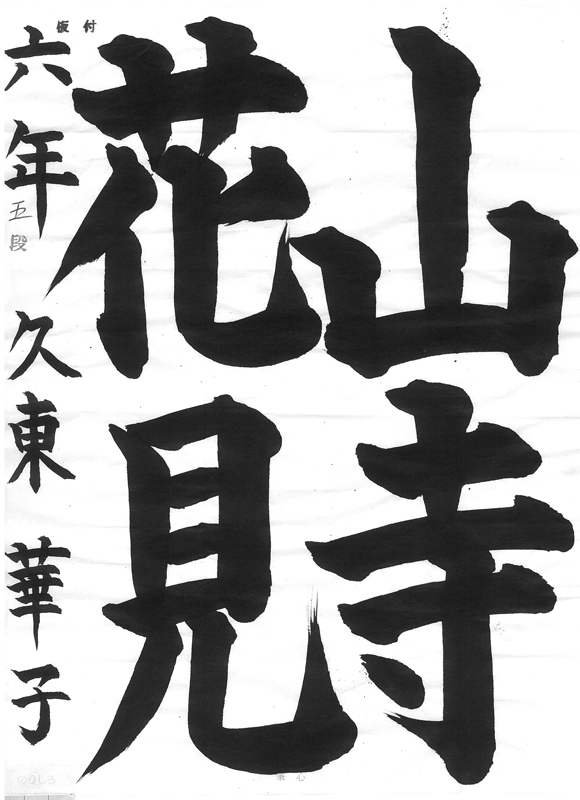 山寺
花見
六年 五段 久東 華子
板付
筆心
のりしろ